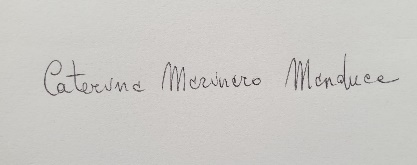 Caterina Marinaro Manduca